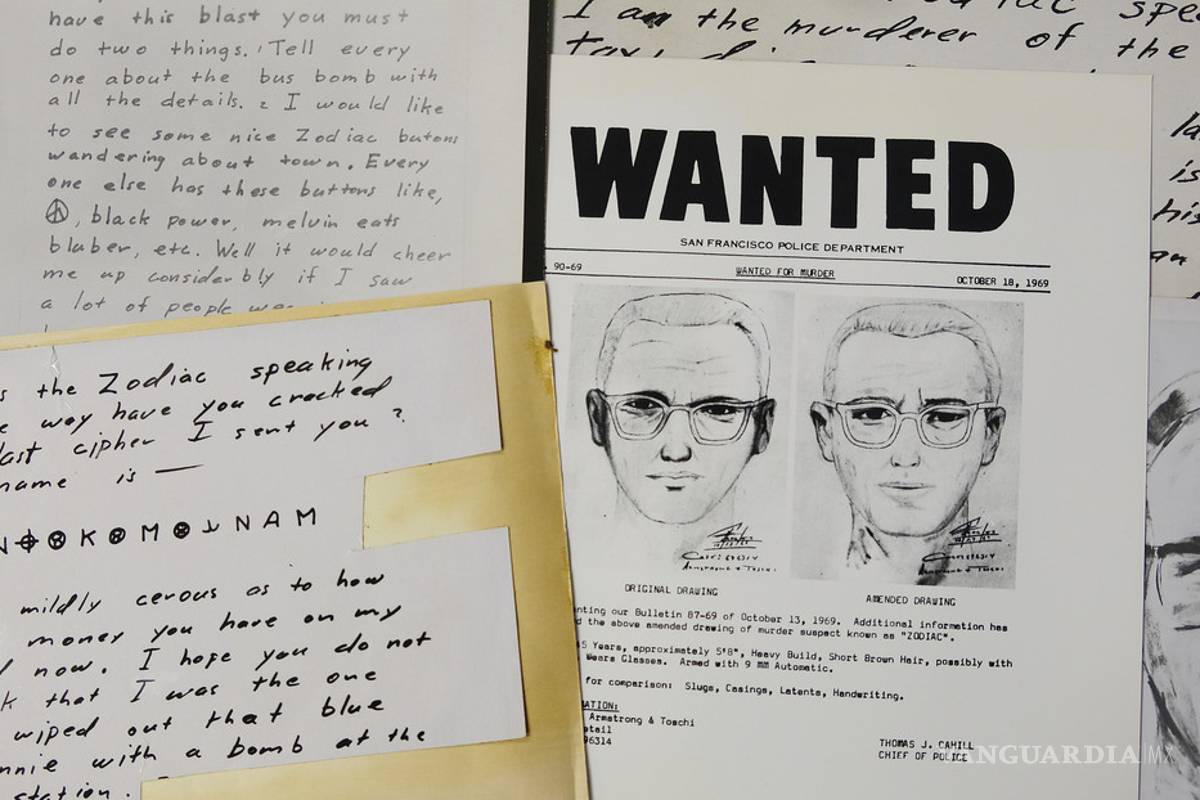 have this blast you must
do two things. 1 Tell every
one about the bus bomb with
all the details. 2 I would like
to see some nice Zodiac butons
wandering about town. Every
one else has these buttons like,
☮, black power, melvin eats
bluber, etc. Well it would cheer
me up considerbly if I saw
a lot of people
I am the murderer of the
is
his
an
s the Zodiac speaking
way have you cracked
last cipher I sent you ?
name is —
K M N A M
mildly cerous as to how
money you have on my
now. I hope you do not
k that I was the one
wiped out that blue
nnie with a bomb at the
station.
WANTED
SAN FRANCISCO POLICE DEPARTMENT
90-69 WANTED FOR MURDER OCTOBER 18, 1969
ORIGINAL DRAWING AMENDED DRAWING
nting our Bulletin 87-69 of October 13, 1969. Additional information has
d the above amended drawing of murder suspect known as "ZODIAC".
5 Years, approximately 5'8", Heavy Build, Short Brown Hair, possibly with
Wears Glasses. Armed with 9 MM Automatic.
for comparison: Slugs, Casings, Latents, Handwriting.
ATION:
Armstrong & Toschi
etail
96314
THOMAS J. CAHILL
CHIEF OF POLICE
VANGUARDIA|MX